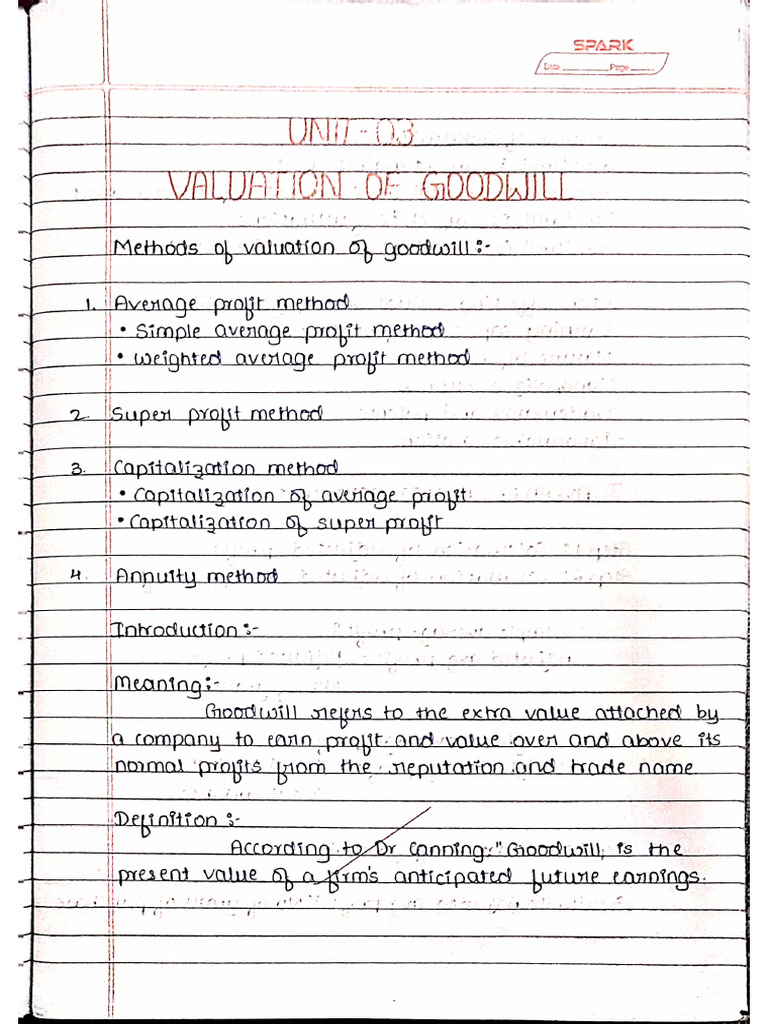 SPARK
Date Page
UNIT-03
VALUATION OF GOODWILL
Methods of valuation of goodwill:-
1. Average profit method
• Simple average profit method
• Weighted average profit method
2. Super profit method
3. Capitalization method
• Capitalization of average profit
• Capitalization of super profit
4. Annuity method
Introduction:-
Meaning:-
Goodwill refers to the extra value attached by
a company to earn profit and value over and above its
normal profits from the reputation and trade name
Definition:-
According to Dr Canning "Goodwill, is the
present value of a firm's anticipated future earnings.